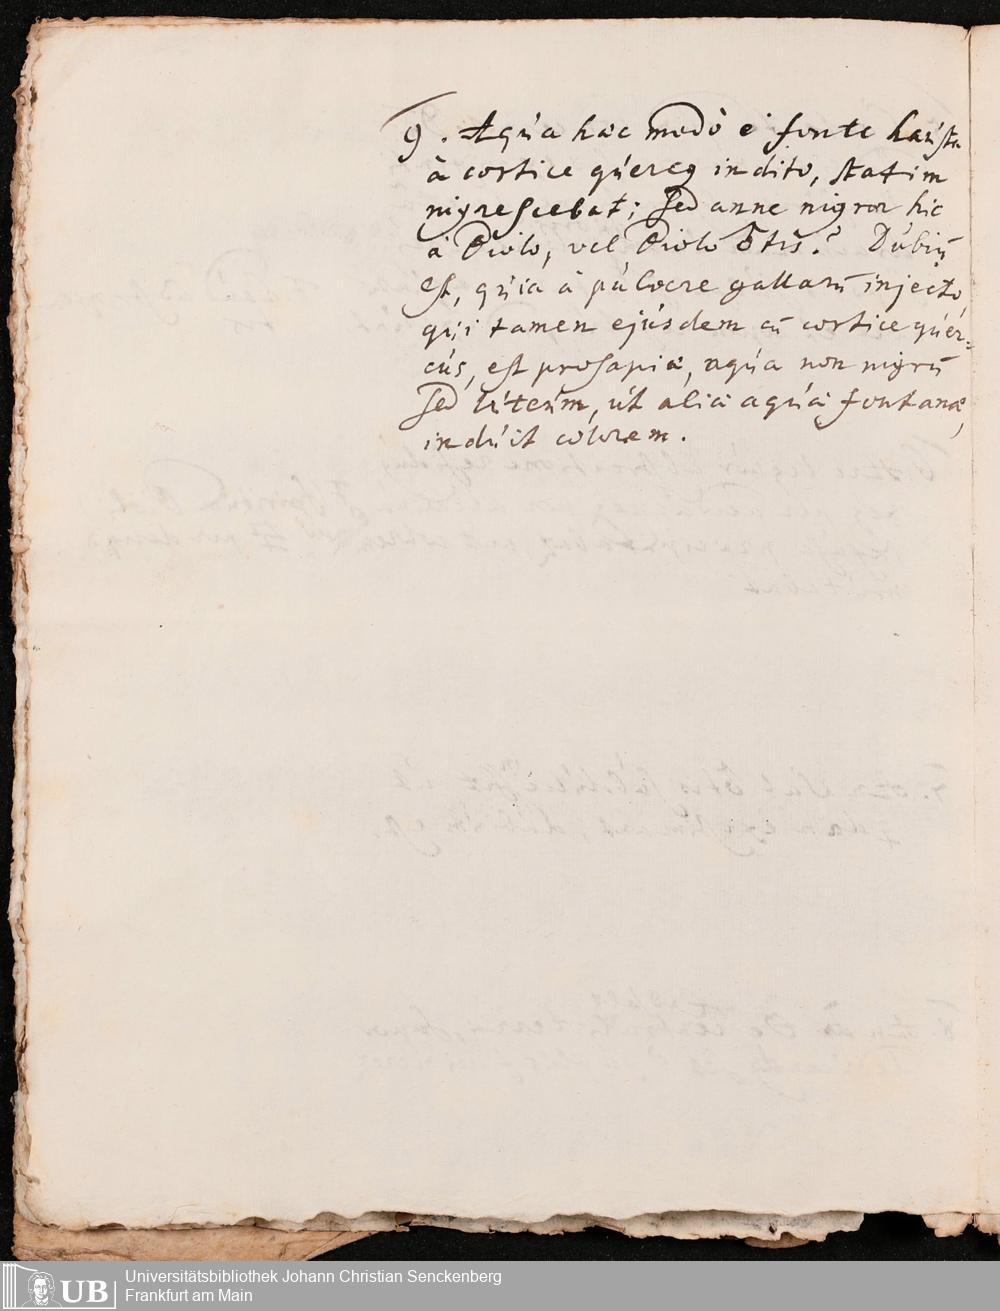 9. Aqúa haec modò è fonte haústa
à cortice qúercq indito, statim
nigrescebat; sed anne nigror hic
à Diolo, vel Diolo
est, qúia à púlvere gallarū injecto
qúi tamen ejúsdem cū cortice qúer=
cús, est prosapiæ, aqúa non nigrū
sed lúteúm, út aliæ aqúæ fontanæ,
indúit colorem.
Dúbiū
UB
Universitätsbibliothek Johann Christian Senckenberg
Frankfurt am Main